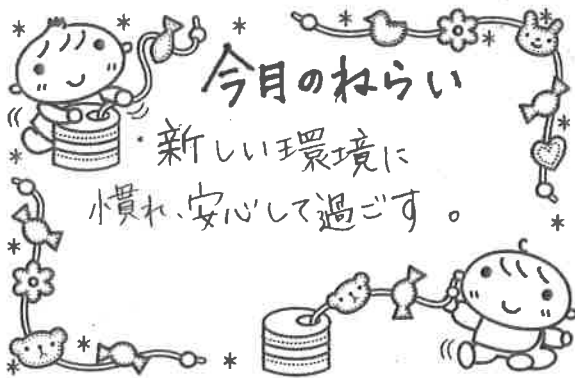 今月のねらい
・新しい環境に
慣れ、安心して過ごす。